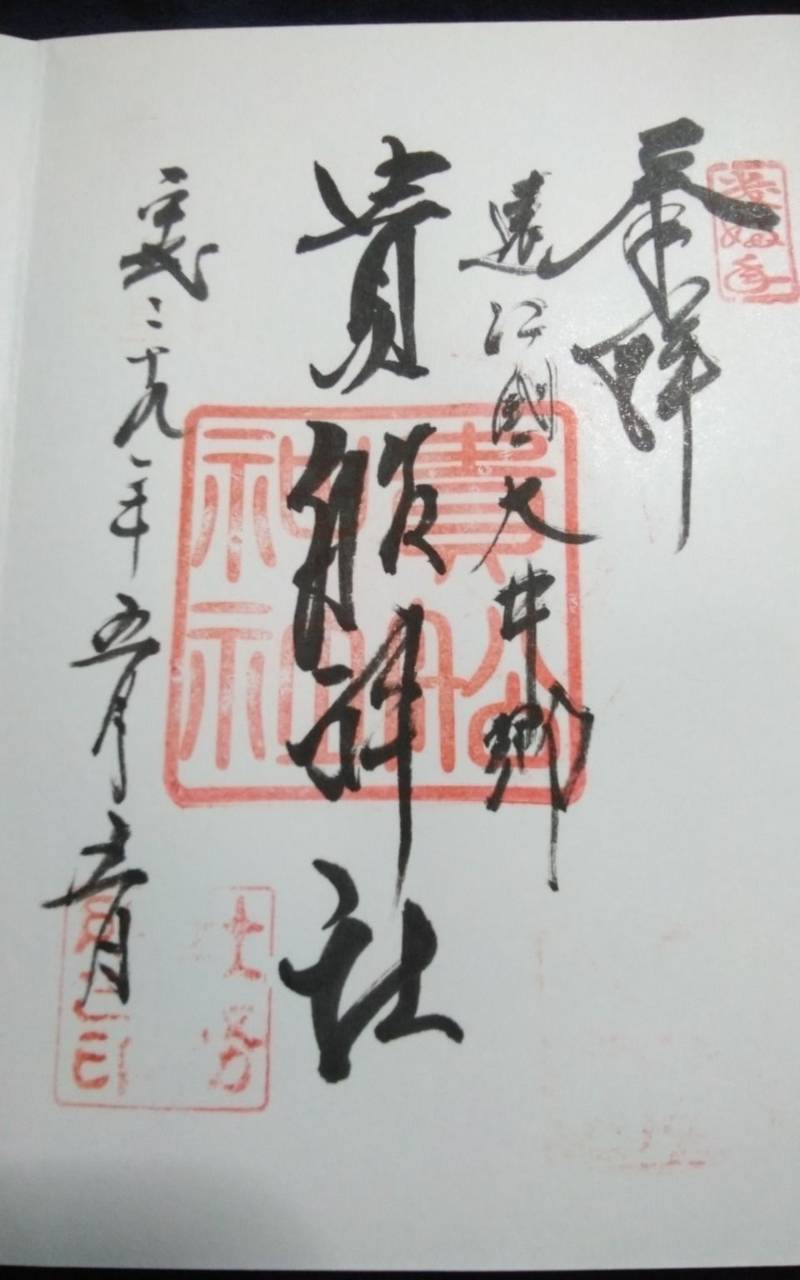 奉拝
遠江國大井郷
貴船神社
平成二十九年五月吉日
貴舩
神社